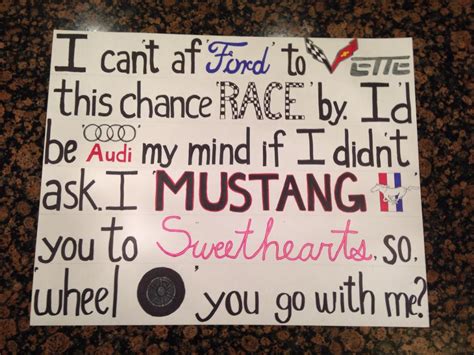 I can't af 'Ford' to VETTE
this chance 'RACE' by. I'd
be 'Audi' my mind if I didn't
ask. I 'MUSTANG'
you to Sweethearts, so,
'wheel' you go with me?